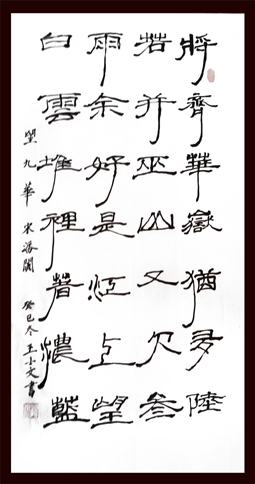 將齊華嶽猶多陸
若并巫山又欠叁
雨余好是江上望
白雲堆裡著濃藍
望九華 宋 潘閬 癸巳冬 王小文書